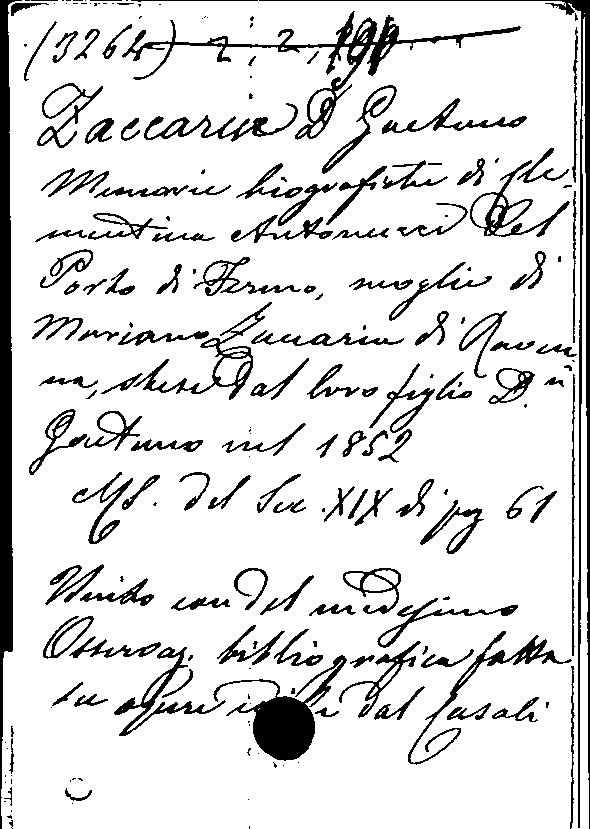 (3264) 2, 2, 190
Zaccaria D. Gaetano
Memorie biografiche di Cle-
mentina Antonucci del
Porto di Fermo, moglie di
Mariano Zaccaria di Raven
na, stese dal loro figlio D.n
Gaetano nel 1852
MS. del Sec. XIX di pag 61
Unito con del medesimo
Osservaz. bibliografica fatta
su opere dal Casali